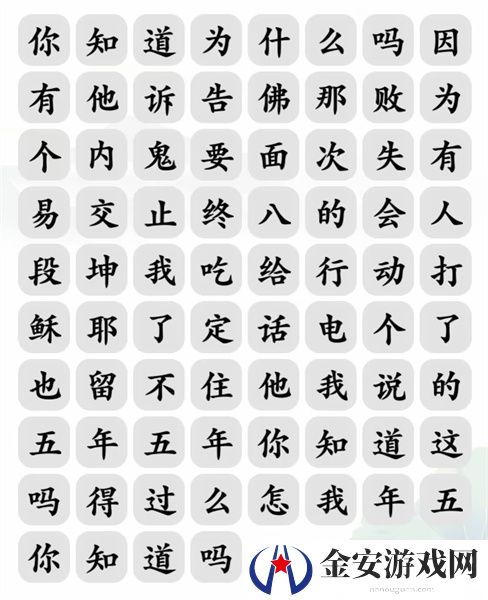 你知道为什么吗因
有他诉告佛那败为
个内鬼要面次失有
易交止终八的会人
段坤我吃给行动打
稣耶了定话电个了
也留不住他我说的
五年五年你知道这
吗得过么怎我年五
你知道吗
金安游戏网